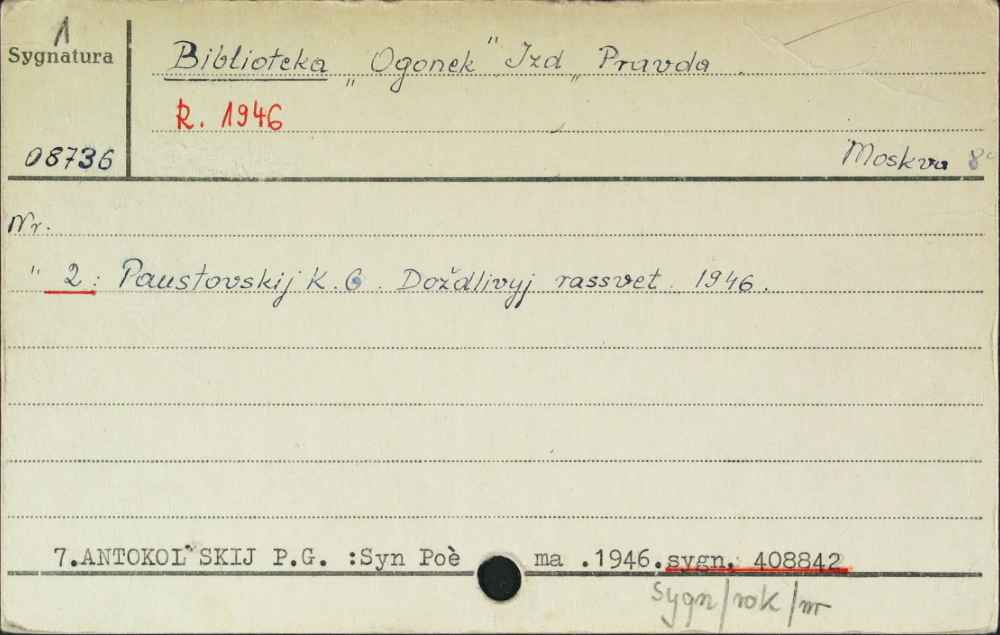 1
Sygnatura
Biblioteka „Ogonek" Izd „Pravda
R. 1946
08736
Moskva 8°
Nr.
" 2: Paustovskij K.G. Doždlivyj rassvet. 1946.
7.ANTOKOL'SKIJ P.G. :Syn Poè ma .1946.sygn. 408842
sygn/rok/nr